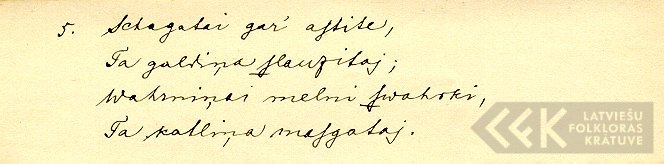 5. Schagatai gar' aſtite,
Ta galdiņa ſlauzitaj;
Wahrniņai melni ſwahrki,
Ta katliņa maſgataj.
LATVIEŠU
FOLKLORAS
KRĀTUVE